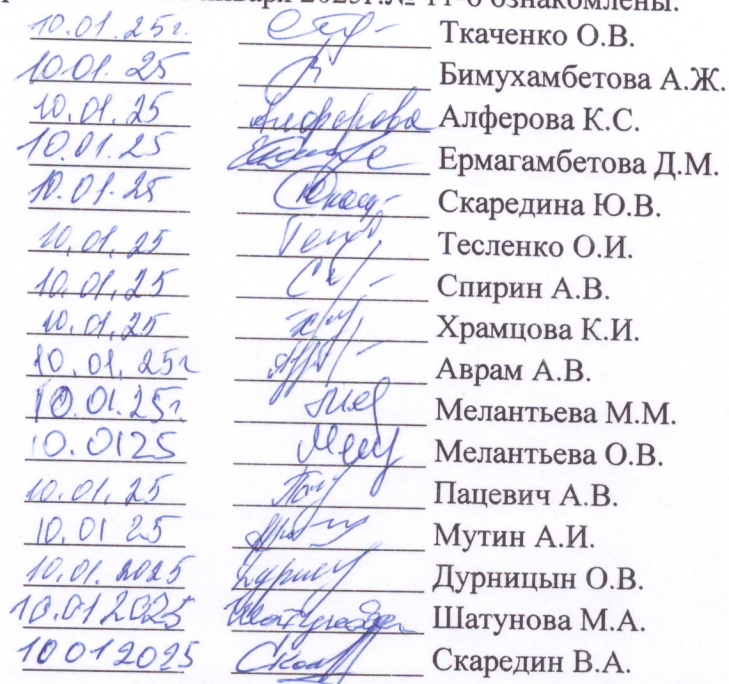 января 2025г.№ 11-о ознакомлены:
10.01.25г. Ткаченко О.В.
10.01.25 Бимухамбетова А.Ж.
10.01.25 Алферова Алферова К.С.
10.01.25 Ермагамбетова Д.М.
10.01.25 Скаредина Ю.В.
10.01.25 Тесленко О.И.
10.01.25 Спирин А.В.
10.01.25 Храмцова К.И.
10.01.25г Аврам А.В.
10.01.25г Мелантьева М.М.
10.0125 Мелантьева О.В.
10.01.25 Пацевич А.В.
10.01 25 Мутин А.И.
10.01.2025 Дурницын О.В.
10.01 2025 Шатунова М.А.
10 01 2025 Скаредин В.А.